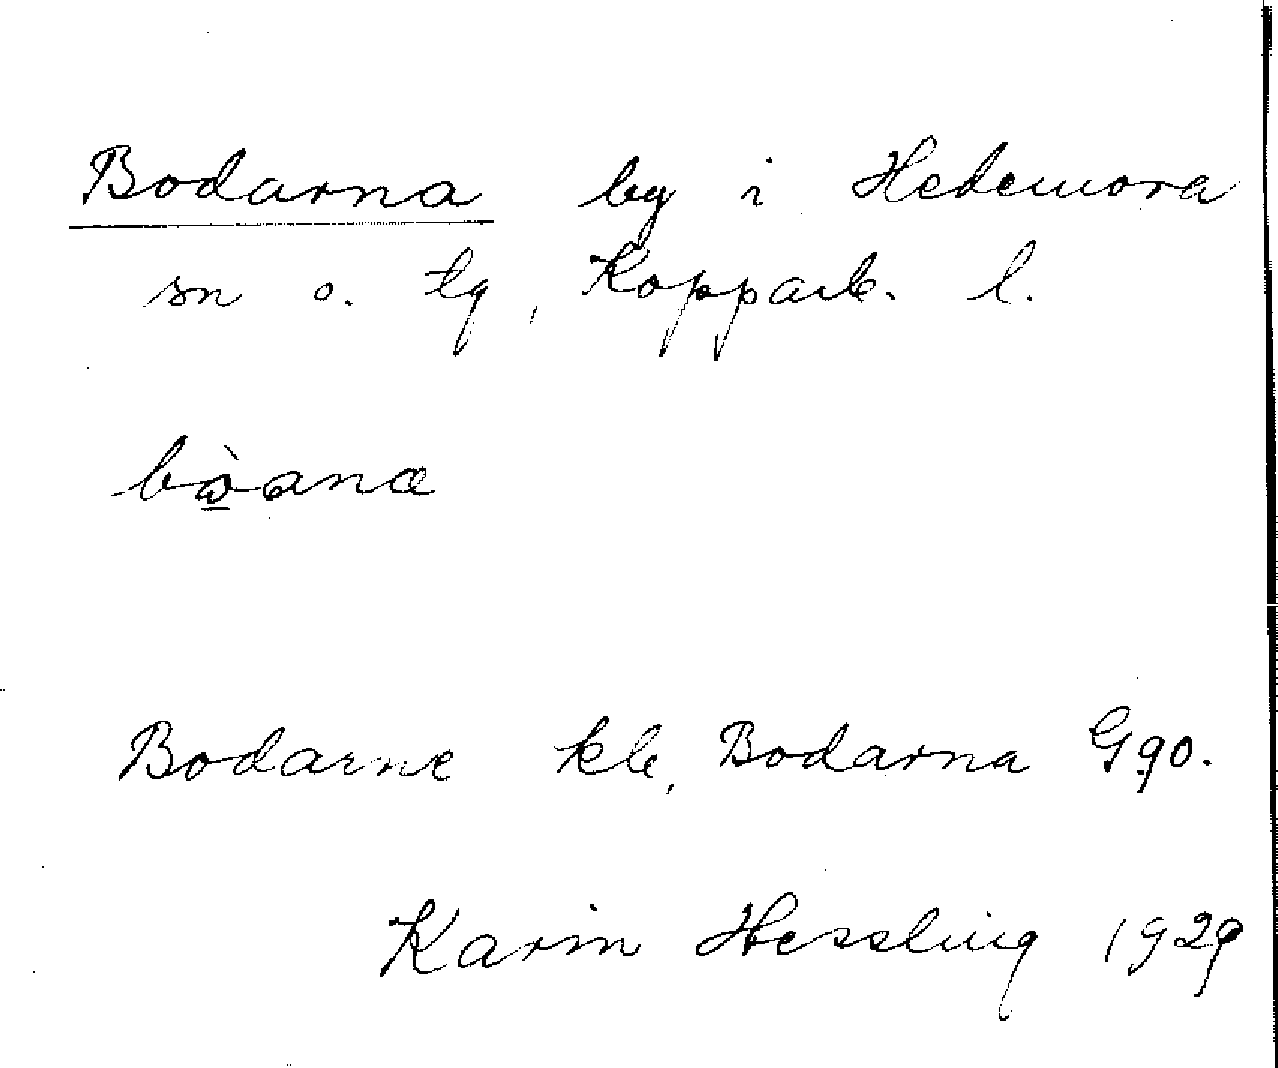 Bodarna by i Hedemora
sn o. tg, Kopparb. l.
bὼ̲anα
Bodarne kb, Bodarna Ggo.
Karin Hessling 1929